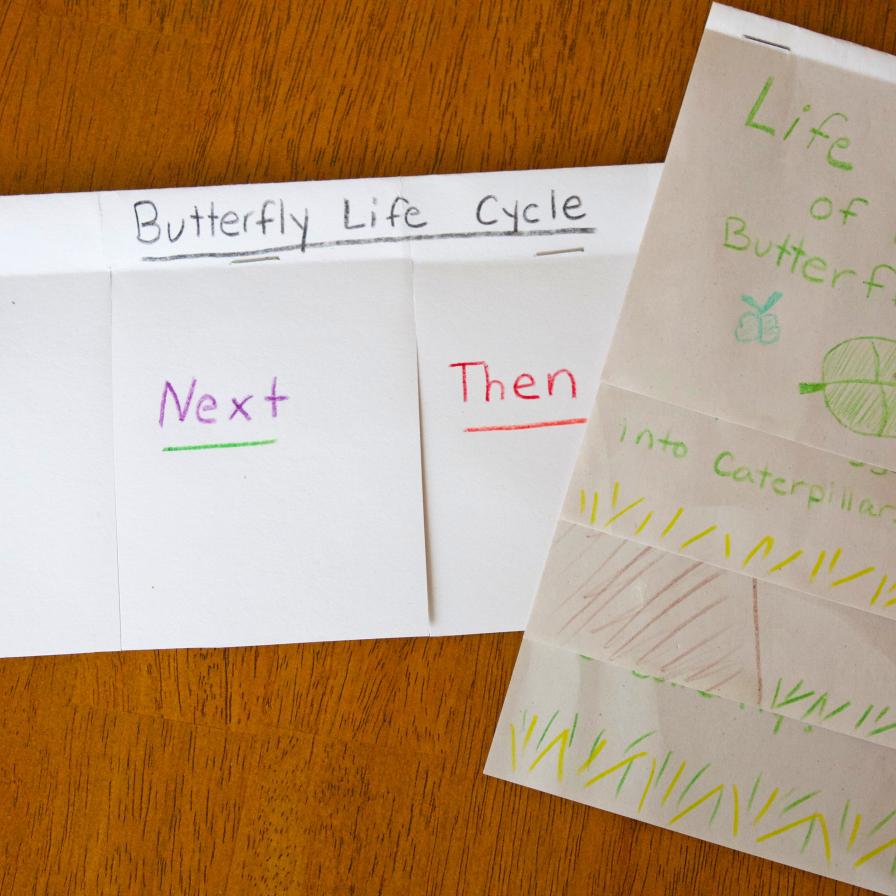 Butterfly Life Cycle
Next
Then
Life
of
Butterf
into Caterpillar